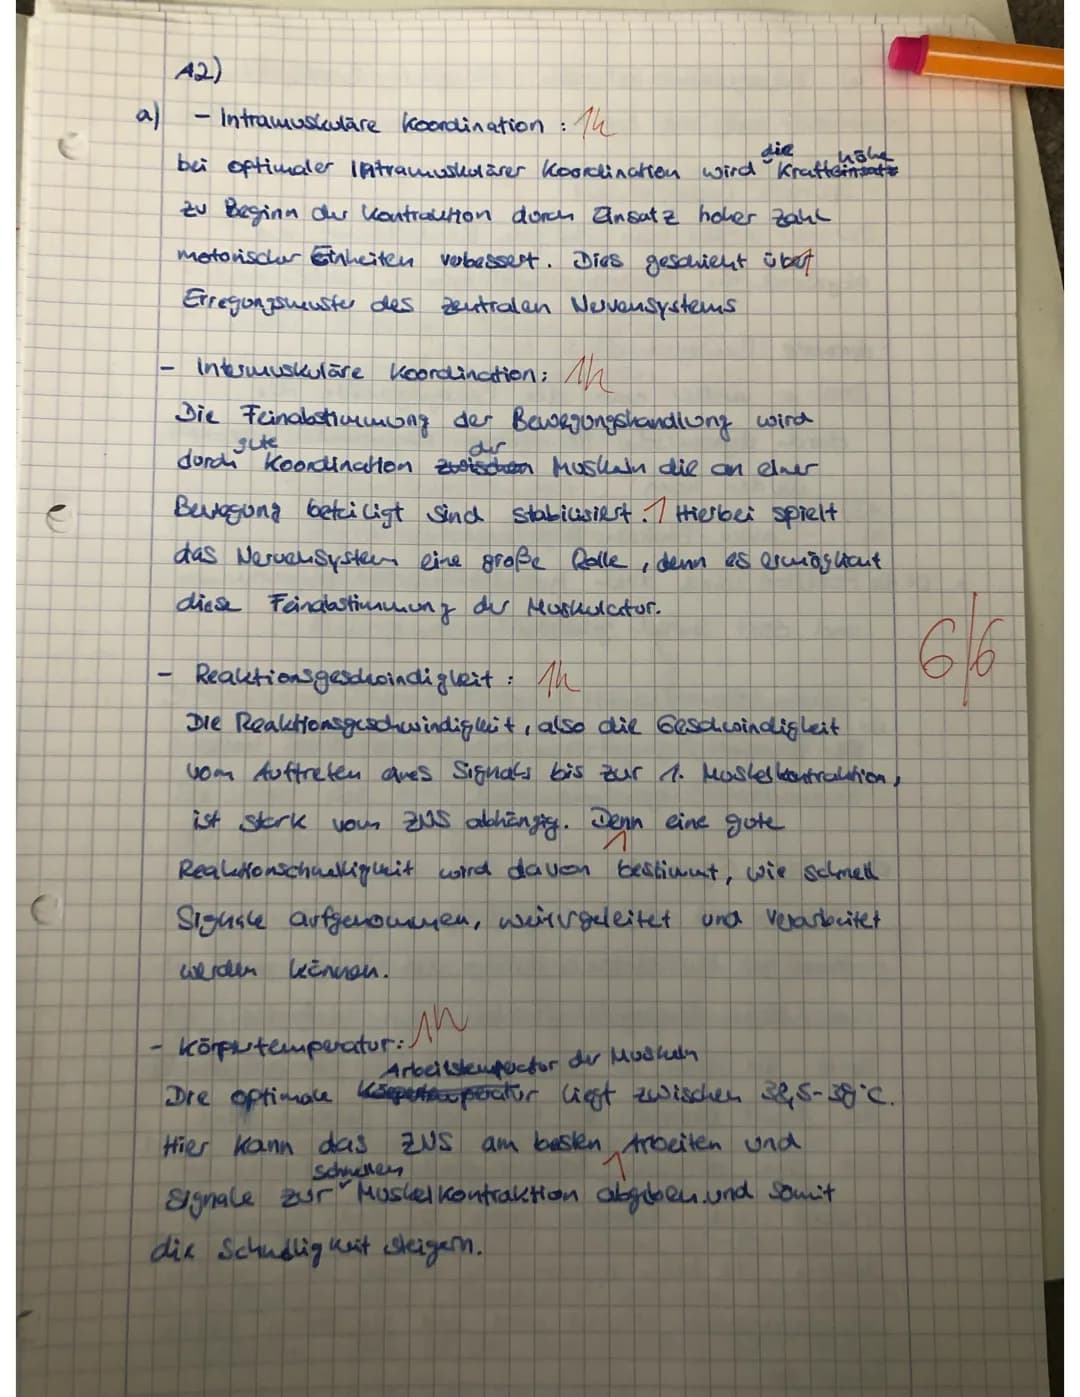 A2)
a) - Intramuskuläre Koordination : 1h
bei optimaler Intramuskulärer Koordination wird die Krafthöhe
zu Beginn der Kontraktion durch Einsatz hoher Zahl
motorischer Einheiten verbessert. Dies geschieht über
Erregungsmuster des zentralen Nervensystems
- Intermuskuläre Koordination: 1h
Die Feinabstimmung der Bewegungshandlung wird
durch gute Koordination zwischen der Muskeln die an einer
Bewegung beteiligt sind stabilisiert. 1 Hierbei spielt
das Nervensystem eine große Rolle, denn es ermöglicht
diese Feinabstimmung der Muskulatur.
6/6
- Reaktionsgeschwindigkeit : 1h
Die Reaktionsgeschwindigkeit, also die Geschwindigkeit
vom Auftreten eines Signals bis zur 1. Muskelkontraktion,
ist stark vom ZNS abhängig. Denn eine gute
Reaktionschnelligkeit wird davon bestimmt, wie schnell
Signale aufgenommen, weitergeleitet und verarbeitet
werden können.
- Körpertemperatur: 1h
Arbeitstemperatur der Muskeln
Die optimale Körpertemperatur liegt zwischen 38,5-39°C.
Hier kann das ZNS am besten Arbeiten und
Signale zur schnellen Muskelkontraktion abgeben und somit
die Schnelligkeit steigern.